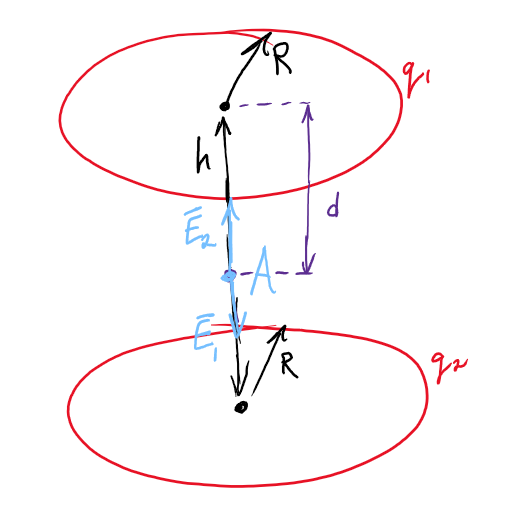 R
q₁
h
d
E̅₂
A
E̅₁
R
q₂